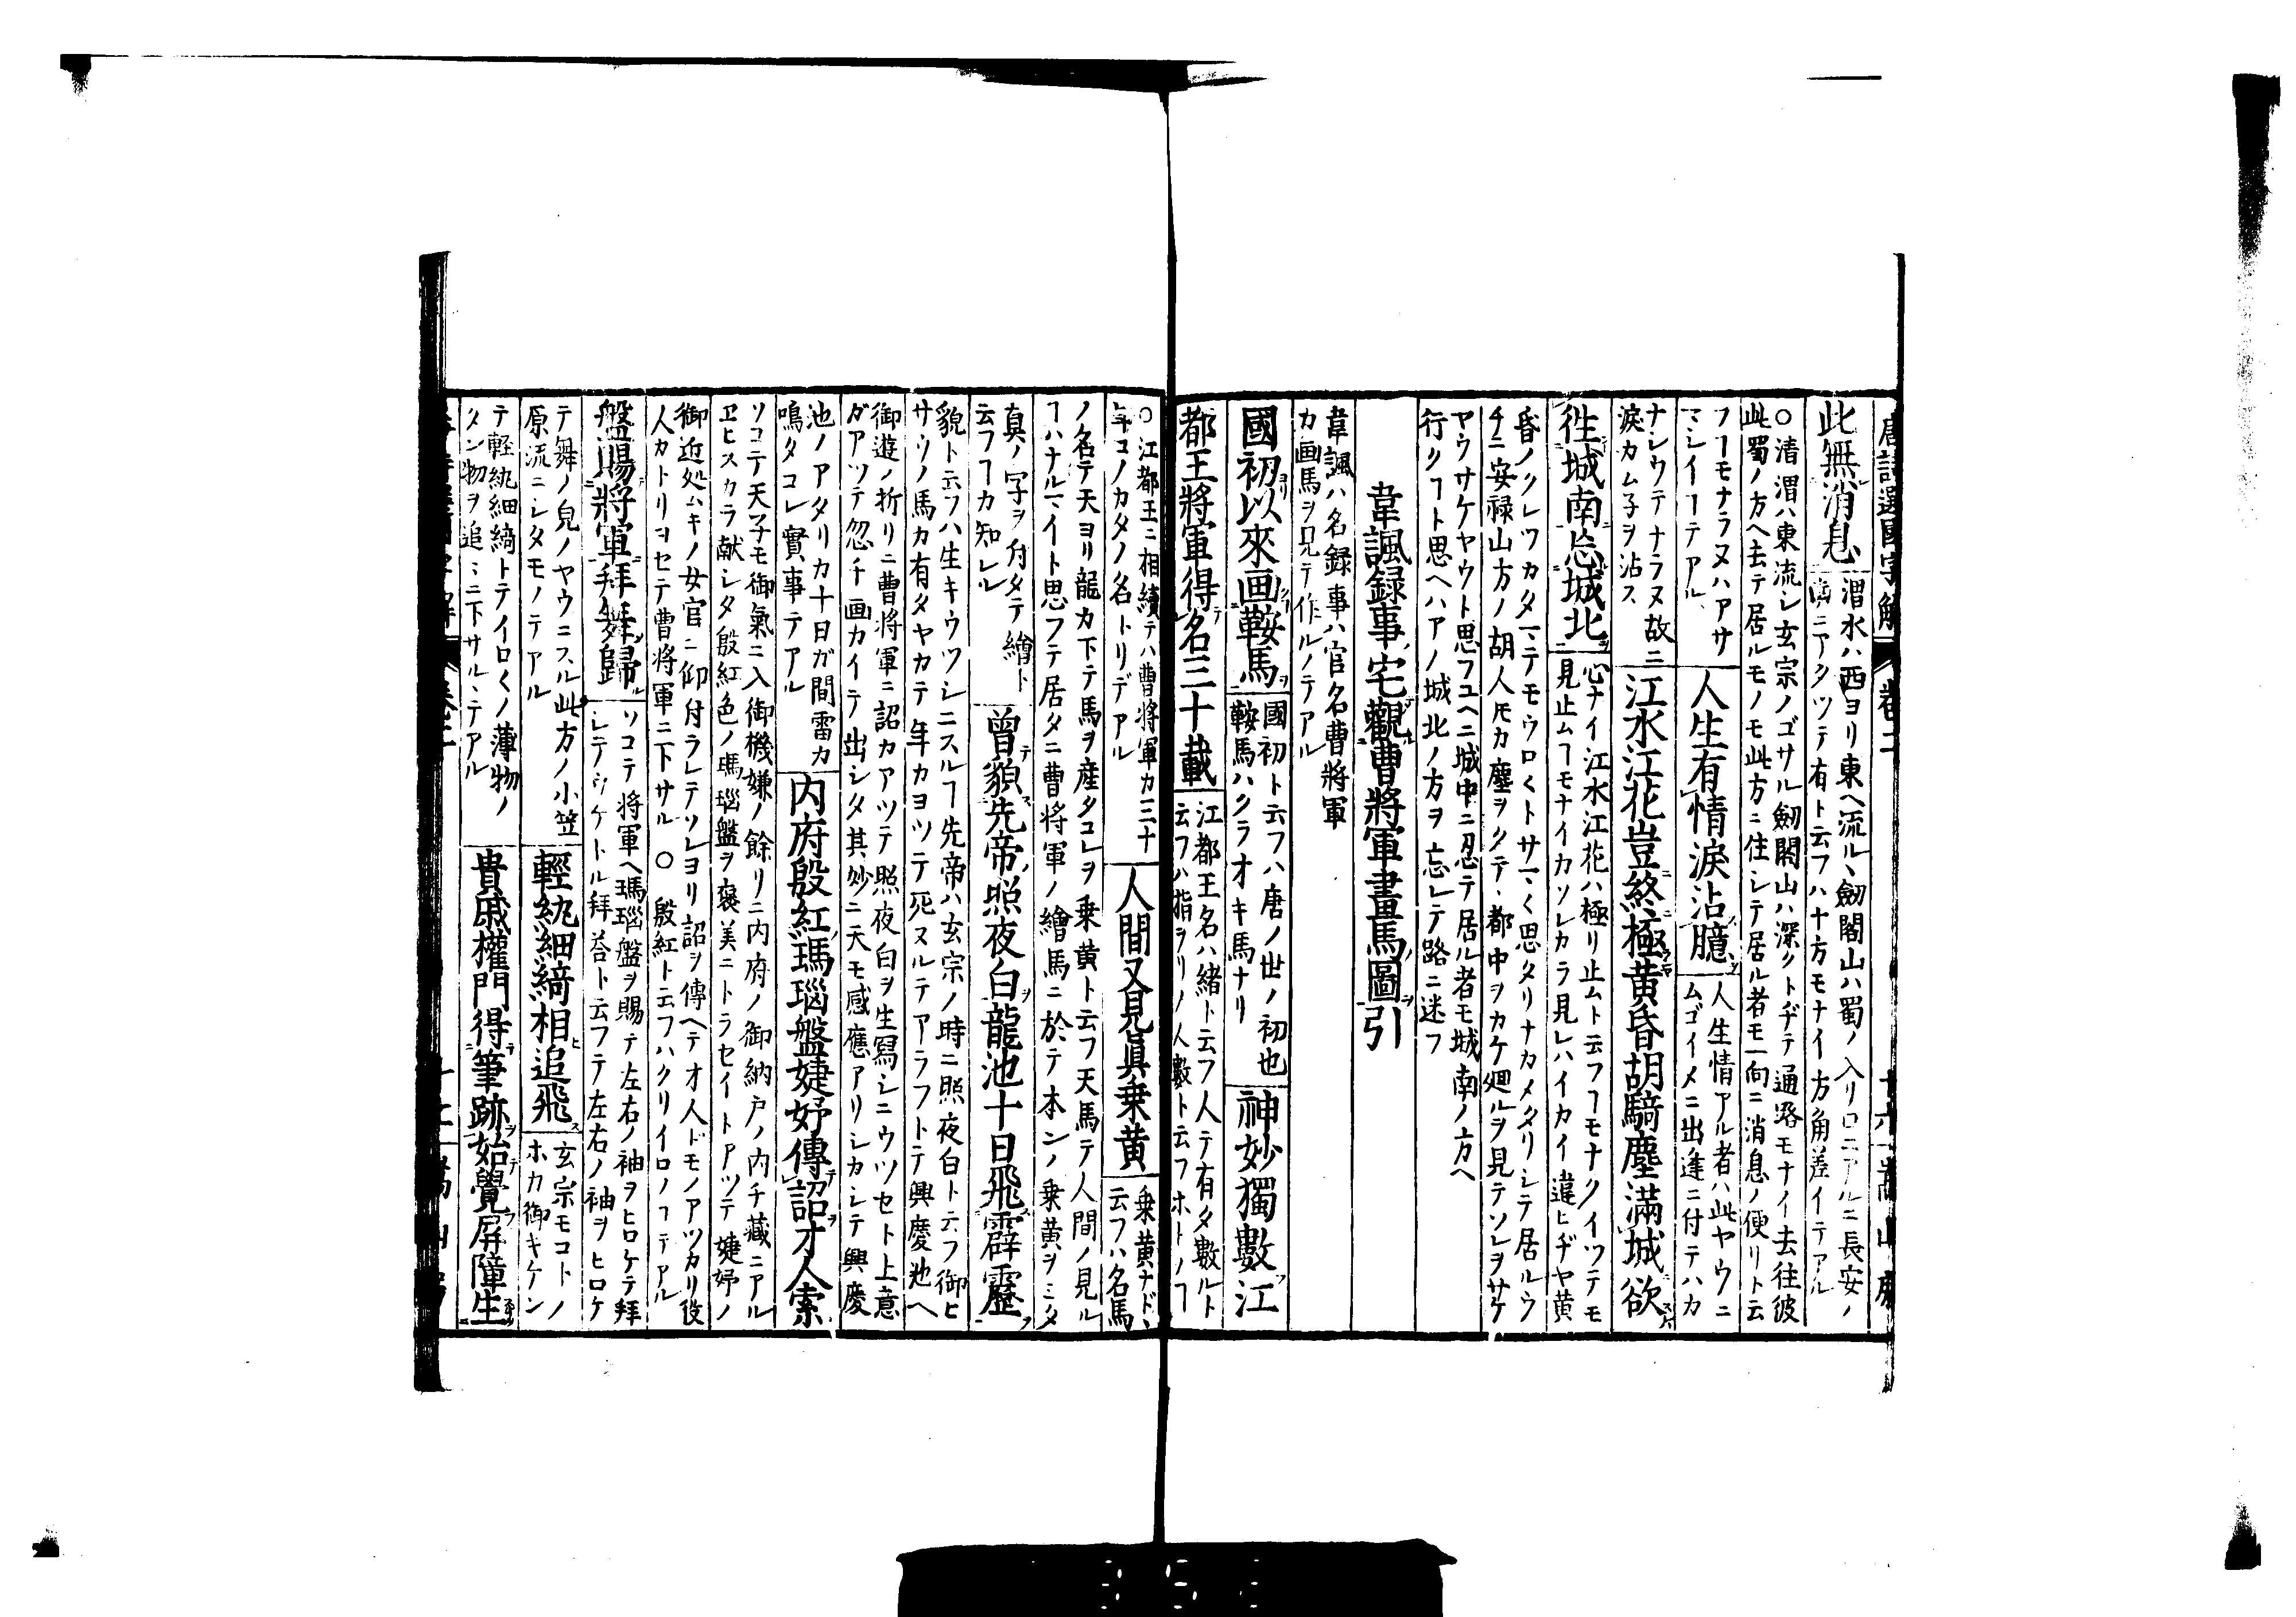 唐詩選國字解 卷二
此無消息 渭水ハ西ヨリ東ヘ流ル、劔閣山ハ蜀ノ入リ口ニアルニ長安ノ
ニアタツテ有ト云フハ十方モナイ方角差イテアル
○清渭ハ東流シ玄宗ノゴサル劔閣山ハ深クトヂテ通路モナイ去往彼
此蜀ノ方ヘ去テ居ルモノモ此方ニ住シテ居ル者モ一向ニ消息ノ便リト云
フヿモナラヌハアサ
マシイヿテアル 人生有情淚沾臆 人生情アル者ハ此ヤウニ
ムゴイメニ出逢ニ付テハカ
ナレウテナラヌ故ニ
淚カム子ヲ沾ス 江水江花豈終極黄昏胡騎塵滿城欲
徃城南忘城北 心ナイ江水江花ハ極リ止ムト云フヿモナクイツテモ
見止ムヿモナイカソレカラ見レハイカイ違ヒヂヤ黄
昏ノクレツカタマテモウロ〱トサマ〱思タリナカメタリシテ居ルウ
チニ安禄山方ノ胡人𪜈カ塵ヲクテ、都中ヲカケ廻ルヲ見テソレヲサケ
ヤウサケヤウト思フユヘニ城中ニ忍テ居ル者モ城南ノ方ヘ
行クヿト思ヘハアノ城北ノ方ヲ忘レテ路ニ迷フ
韋諷録事宅觀曹將軍畫馬圖引
韋諷ハ名録事ハ官名曹將軍
カ画馬ヲ見テ作ルノテアル
國初以來画鞍馬 國初ト云フハ唐ノ世ノ初也
鞍馬ハクラオキ馬ナリ 神妙獨數江
都王將軍得名三十載 江都王名ハ緒ト云フ人テ有タ數ルト
云フハ指ヲリノ人數ト云フホトノヿ
○江都王ニ相續テハ曹將軍カ三十
年コノカタノ名トリデアル 人間又見眞乗黄 乗黄ナド、
云フハ名馬
ノ名テ天ヨリ龍カ下テ馬ヲ産タコレヲ乗黄ト云フ天馬テ人間ノ見ル
ヿハナルマイト思フテ居タニ曹将軍ノ繪馬ニ於テ本ンノ乗黄ヲミタ
真ノ字ヲ付タテ繪ト
云フヿカ知レル 曾貌先帝照夜白龍池十日飛霹靂
貌ト云フハ生キウツシニスルヿ先帝ハ玄宗ノ時ニ照夜白ト云フ御ヒ
サウノ馬カ有タヤカテ年カヨツテ死ヌルテアラフトテ興慶池ヘ
御遊ノ折リニ曹将軍ニ詔カアツテ照夜白ヲ生冩シニウツセト上意
ガアツテ忽チ画カイテ出シタ其妙ニ天モ感應アリシカシテ興慶
池ノアタリカ十日ガ間雷カ
鳴タコレ實事テアル 内府殷紅瑪瑙盤婕妤傳詔才人索
ソコテ天子モ御氣ニ入御機嫌ノ餘リニ内府ノ御納戸ノ内チ藏ニアル
ヱヒスカラ献シタ殷紅色ノ瑪瑙盤ヲ褒美ニトラセイトアツテ婕妤ノ
御近処ムキノ女官ニ仰付ラレテソレヨリ詔ヲ傳ヘテ才人ドモノアツカリ役
人カトリヨセテ曹将軍ニ下サル ○殷紅ト云フハクリイロノヿテアル
盤賜將軍拜舞歸 ソコテ将軍ヘ瑪瑙盤ヲ賜テ左右ノ袖ヲヒロケテ拜
シテウケトル拜荅ト云フテ左右ノ袖ヲヒロケ
テ舞ノ皃ノヤウニスル此方ノ小笠
原流ニシタモノテアル 輕紈細綺相追飛 玄宗モコトノ
ホカ御キケン
テ軽紈細綺トテイロ〱ノ薄物ノ
タン物ヲ追〻ニ下サル、テアル 貴戚權門得筆跡始覺屏障生